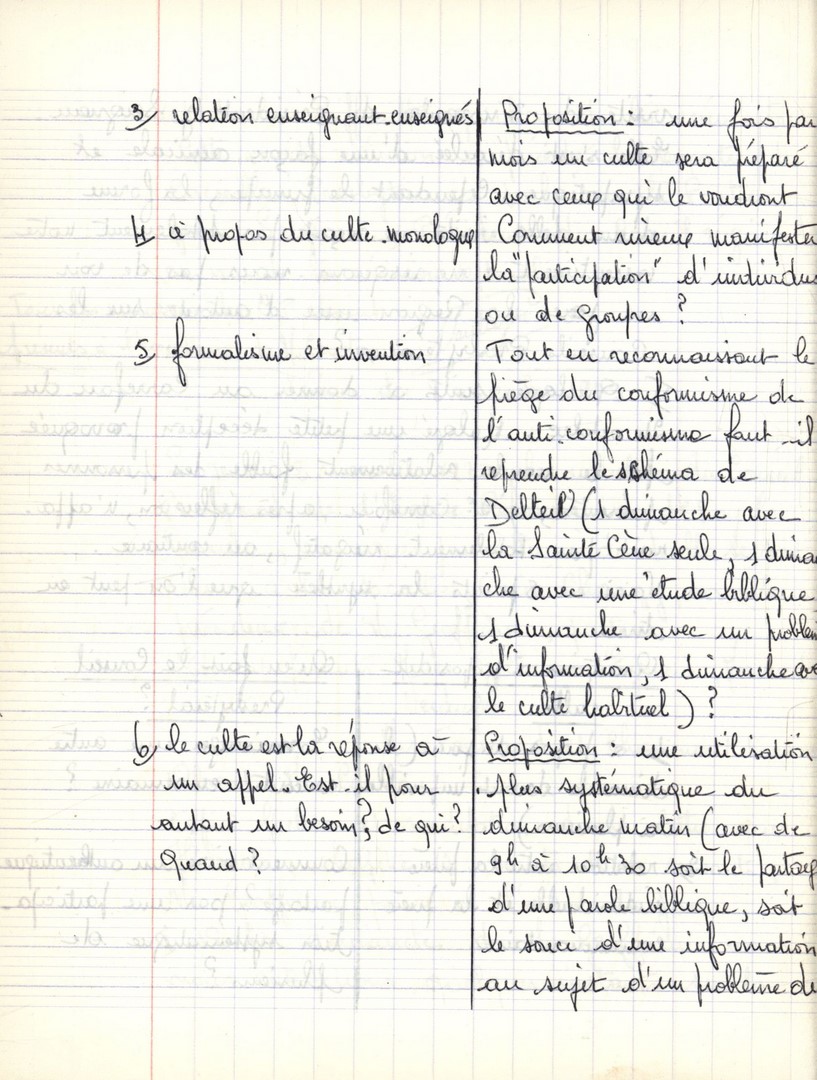 3) relation enseignant-enseignés
4) à propos du culte-monologue
5) formalisme et invention
6) le culte est la réponse à
un appel. Est-il pour
autant un besoin? de qui?
Quand?
Proposition : une fois par
mois un culte sera préparé
avec ceux qui le voudront
Comment mieux manifester
la "participation" d'individus
ou de groupes ?
Tout en reconnaissant le
piège du conformisme de
l'anti-conformisme faut-il
reprendre le schéma de
Delteil (1 dimanche avec
la Sainte Cène seule, 1 diman
che avec une étude biblique
1 dimanche avec un problèm
d'information, 1 dimanche ave
le culte habituel) ?
Proposition : une utilisation
plus systématique du
dimanche matin (avec de
9h à 10h30 soit le partag
d'une parole biblique, soit
le souci d'une information
au sujet d'un problème de